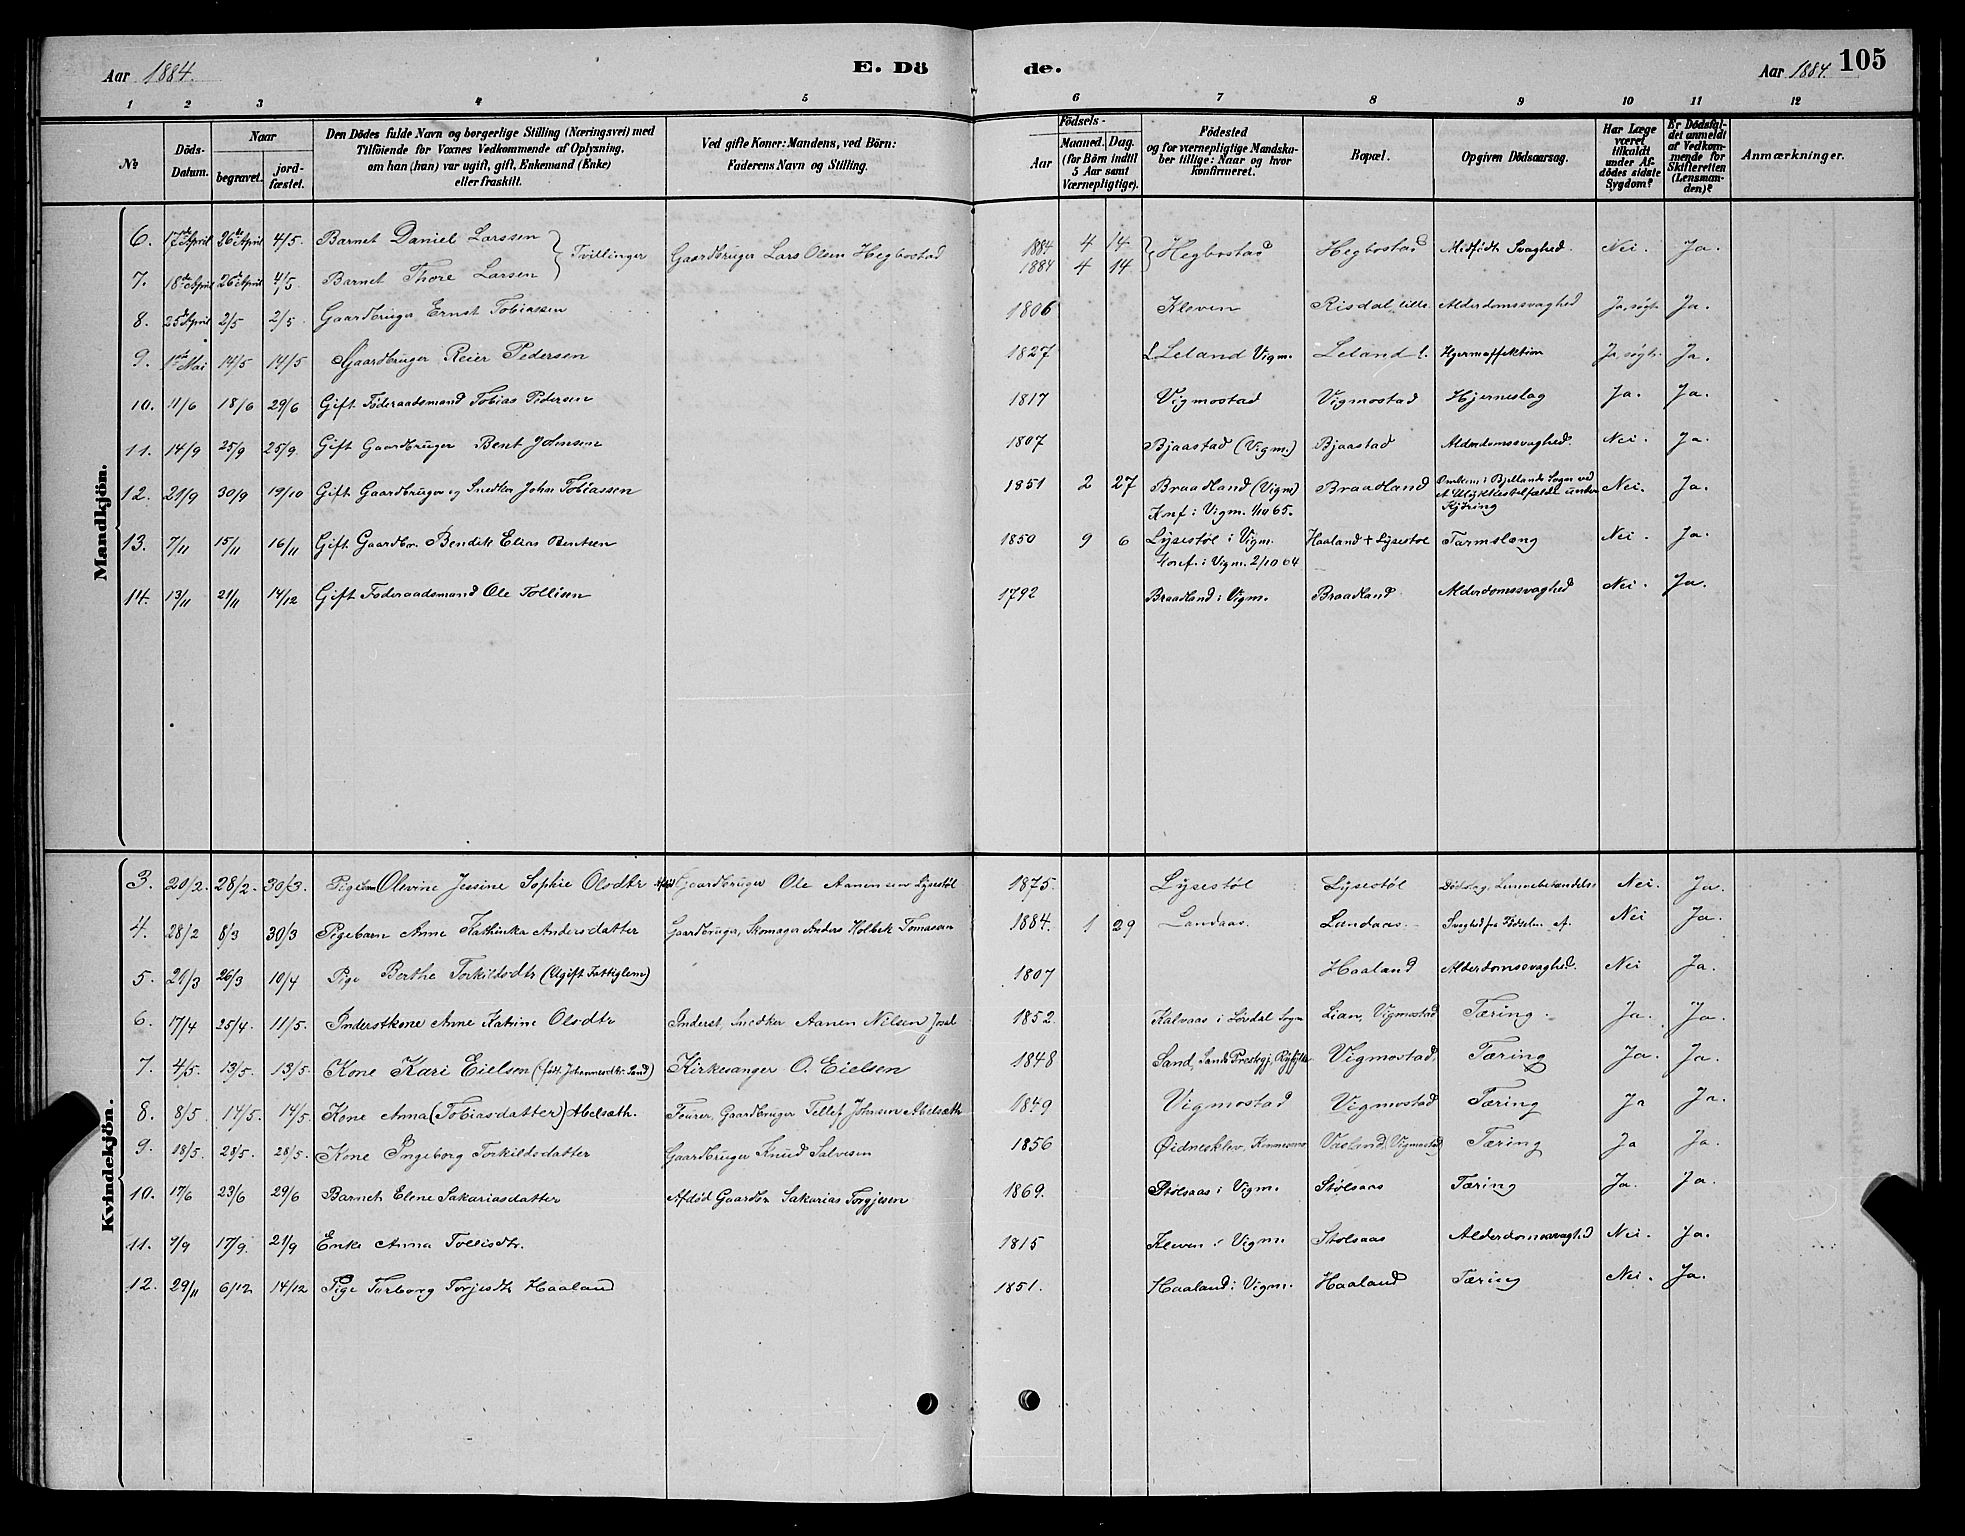 Aar 1884. E. Dö de. Aar 1884. 105
1 2 3 4 5 6 7 8 9 10 11 12
No Döds-Datum. Naar begravet. jordfæstet. Den Dödes fulde Navn og borgerlige Stilling (Næringsvei) med Tilföiende for Voxnes Vedkommende af Oplysning, om han (hun) var ugift, gift, Enkemand (Enke) eller fraskilt. Ved gifte Koner: Mandens, ved Börn: Faderens Navn og Stilling. Födsels- Aar Maaned. Dag. (for Börn indtil 5 Aar samt Værnepligtige). Födested og for værnepligtige Mandskaber tillige: Naar og hvor konfirmeret. Bopæl. Opgiven Dödsaarsag. Har Læge været tilkaldt under Afdödes sidste Sygdom? Er Dödsfaldet anmeldt af Vedkommende for Skifteretten (Lensmanden)? Anmærkninger.
Mandkjön.
6. 17de April 26de April 4/5. Barnet Daniel Larssen } Tvillinger Gaardbruger Lars Olsen Hegbostad 1884 4 14 } Hegbostad Hegbostad Medfødt Svaghed. Nei. Ja.
7. 18de April 26de April 4/5. Barnet Thore Larsen 1884 4 14
8. 25de April 2/5 2/5. Gaardbruger Ernst Tobiassen 1806 Kleven Risdal, lille. Alderdomssvaghed Ja, søgt. Ja.
9. 1ste Mai 14/5 14/5 Gaardbruger Reier Pedersen 1827 L. Leland Vigm. Leland l. Hjerneaffektion Ja, søgt. Ja.
10. 11/6 18/6 29/6 Gift Føderaadsmand Tobias Pedersen 1817 Vigmostad Vigmostad Hjerneslag Ja. Ja.
11. 14/9 25/9 25/9. Gift Gaardbruger Bent Johnsen 1807 Bjaastad (Vigm.) Bjaastad Alderdomssvaghed. Nei. Ja.
12. 21/9 30/9 19/10 Gift Gaardbruger og Snedker John Tobiassen 1851 2 27 Braadland (Vigm) Braadland Omkom i Bjellands Sogn ved et Ulykkestilfælde under Kjøring Nei. Ja.
Konf. i Vigm. 1/10 65.
13. 7/11 15/11 16/11 Gift Gaardbr. Bendik Elias Bentsen 1850 9 6 Lysestøl i Vigm. Haaland + Lysestøl Tarmslyng Nei. Ja.
Konf. i Vigm. 2/10 64
14. 13/11 21/11 14/12 Gift Føderaadsmand Ole Tollisen 1792 Braadland i Vigm. Braadland Alderdomssvaghed Nei. Ja.
Kvindekjön.
3. 20/2. 28/2. 30/3. Pigebarn Olevine Jessine Sophie Olsdtr Gaardbruger Ole Aanensen Lysestøl 1875. Lysestøl Lysestøl Nei. Ja.
4. 28/2 8/3 30/3 Pigebarn Anne Kathinka Andersdatter Gaardbruger, Skomager Anders Holbek Tomassen 1884. 1 29 Landaas. Landaas. Svaghed fra Fødselen af. Nei Ja.
5. 21/3 26/3 10/4 Pige Berthe Torkildsdtr (Ugift Fattiglem) 1807 Haaland Alderdomssvaghed. Nei Ja.
6. 17/4 25/4. 11/5. Inderstkone Anne Katrine Olsdtr Inderst, Snedker Aanen Nilsen 1852. Kalvaas i Løvdal Sogn Lian, Vigmostad Tæring. Ja. Ja.
7. 4/5. 13/5. 13/5. Kone Kari Eielsen (født Johannesdtr. Sand) Kirkesanger O. Eielsen 1848 Sand, Sands Prestegj. Ryfylke Vigmostad Tæring Ja. Ja.
8. 8/5. 14/5. 14/5. Kone Anna (Tobiasdatter) Abelsæth. Fourer, Gaardbruger Tellef Johnsen Abelsæth 1849 Vigmostad Vigmostad Tæring Ja Ja.
9. 18/5. 28/5. 28/5. Kone Ingeborg Torkildsdatter Gaardbruger Knud Salvesen 1856 Øidnesklev, Vigmostad Tæring Ja Ja.
10. 17/6 23/6 29/6 Barnet Elene Sakariasdatter Afdød Gaardbr. Sakarias Torgjesen 1869. Stølsaas i Vigm. Stølsaas Tæring Ja. Ja.
11. 9/9 17/9. 21/9 Enke Anna Tollisdtr. 1815 Kleven i Vigm. Stølsaas Alderdomssvaghed Nei. Ja.
12. 29/11 6/12 14/12 Pige Torborg Torjesdtr Haaland 1851. Haaland i Vigm. Haaland Tæring Nei. Ja.